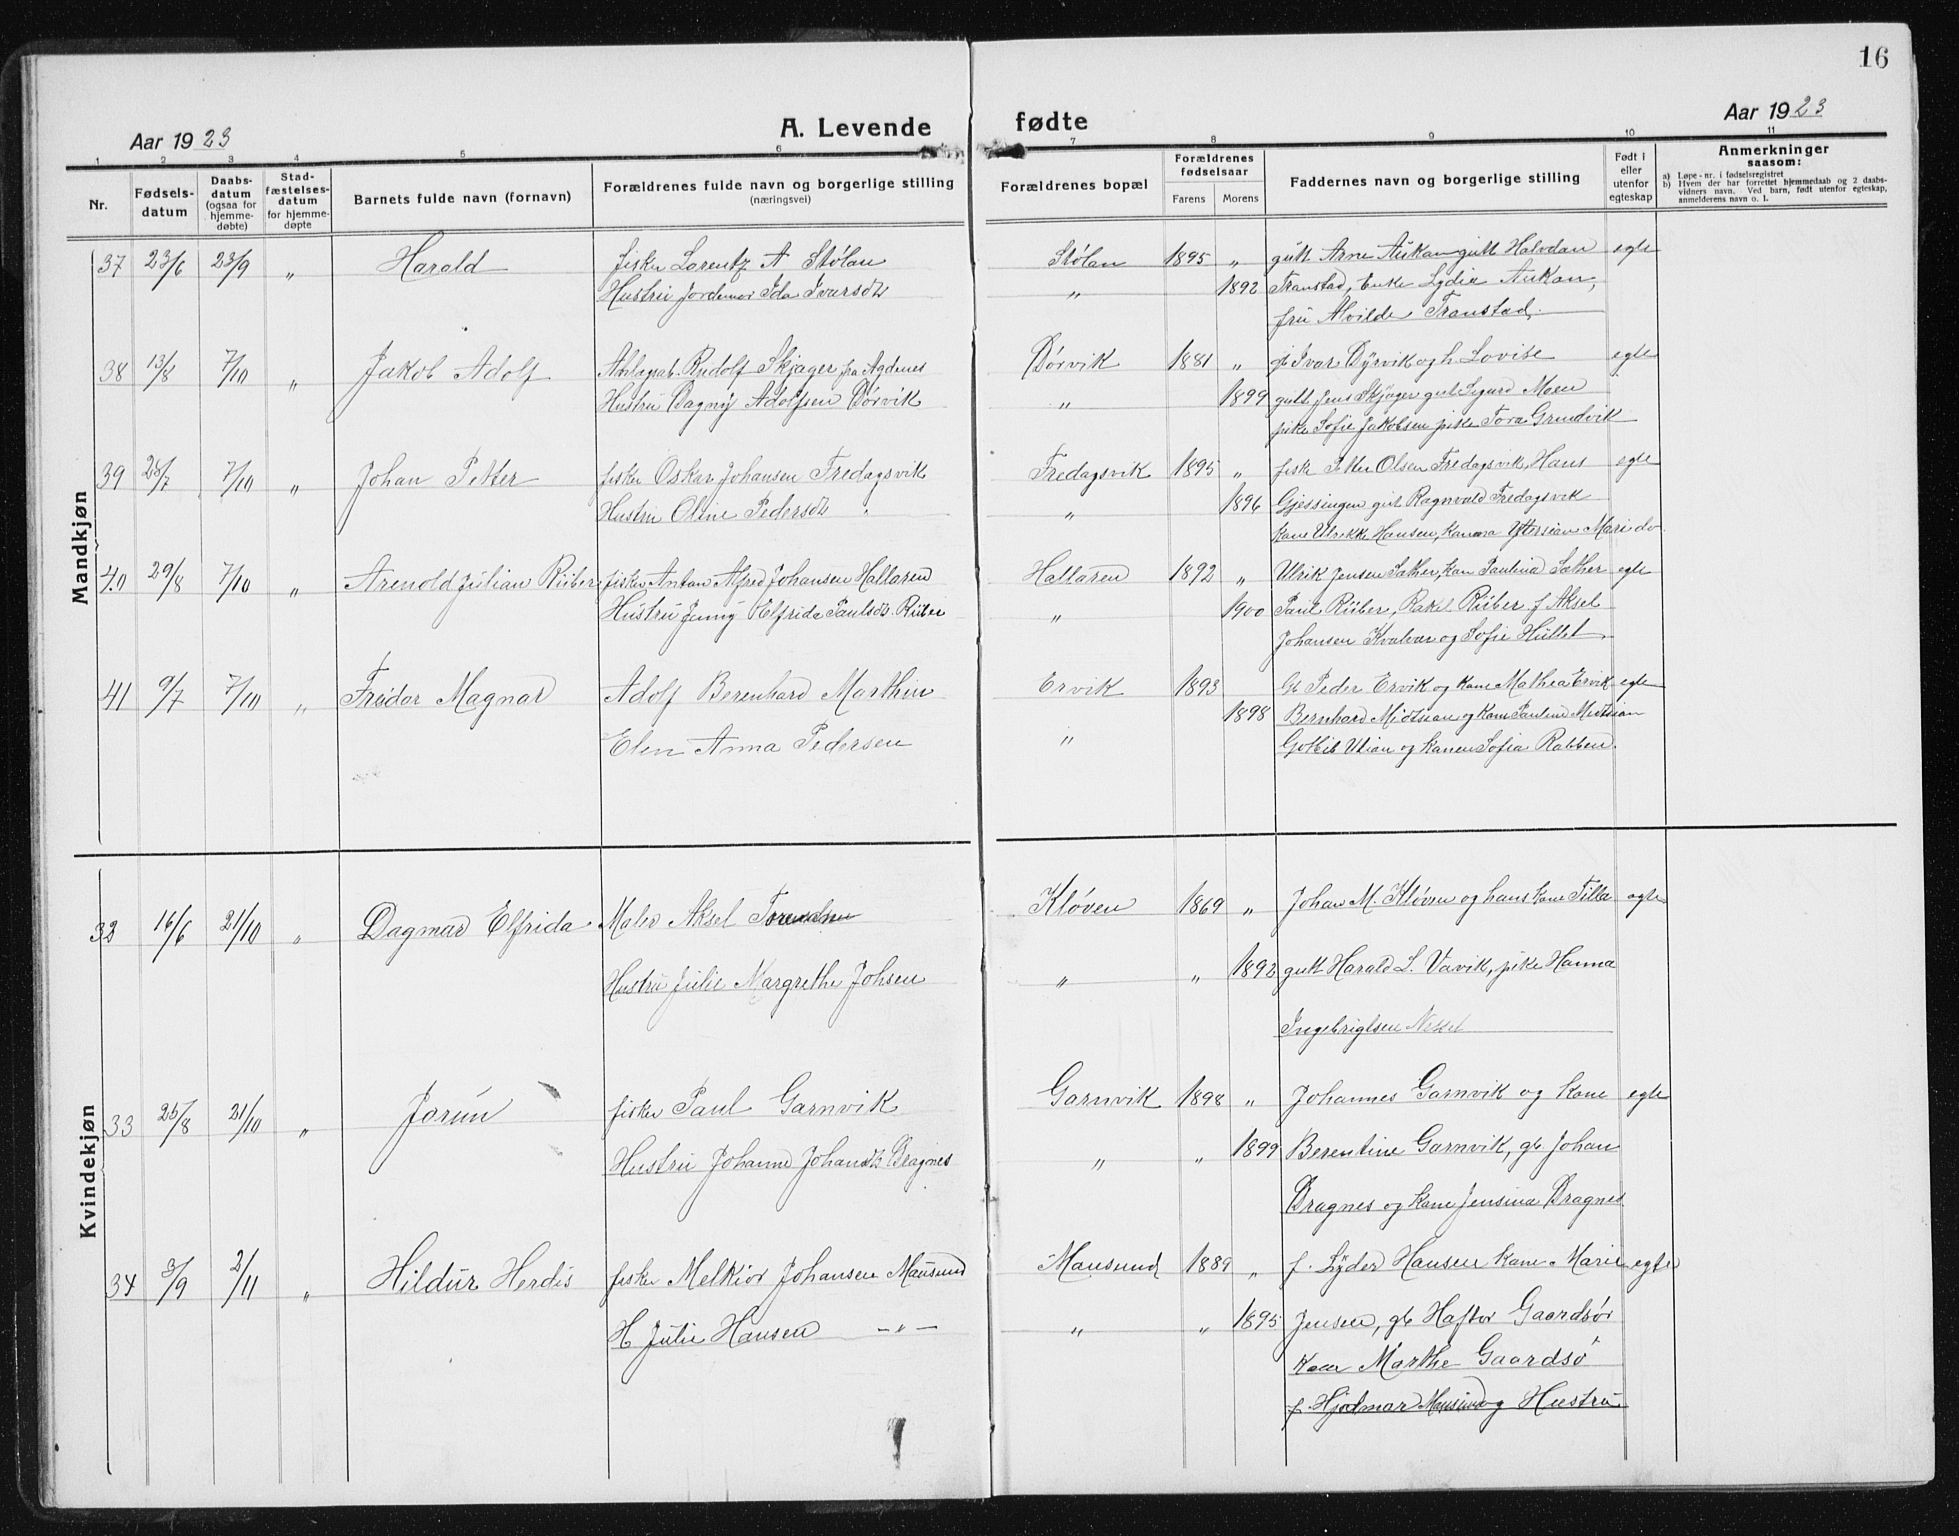 16
Aar 1923
A. Levende fødte
Aar 1923
1 2 3 4 5 6 7 8 9 10 11
Nr.
Fødsels-datum
Daabs-datum (ogsaa for hjemme-døbte)
Stad-fæstelses-datum for hjemme-døpte
Barnets fulde navn (fornavn)
Forældrenes fulde navn og borgerlige stilling (næringsvei)
Forældrenes bopæl
Forældrenes fødselsaar
Farens Morens
Faddernes navn og borgerlige stilling
Født i eller utenfor egteskap
Anmerkninger saasom:
a) Løpe-nr. i fødselsregistret
b) Hvem der har forrettet hjemmedaab og 2 daabs-vidners navn. Ved barn, født utenfor egteskap, anmelderens navn o. l.
Mandkjøn
37 23/6 23/9 " Harald fisker Lorentz A Stølan Stølan 1895 " gutt Arne Aukan gutt Halvdan egte
Hustru Jordemor Ida Ivarsdt " 1892 Transtad, Enke Lydia Aukan,
fru Alvilde Transtad.
38 13/8 7/10 " Jakob Adolf Rudolf Skjager fra Agdenes Dørvik 1881 " gb Ivar Dyrvik og h. Lovise egte
Hustru Dagny Adolfsen Dørvik " 1899 gutt Jens Skjager gut Sigurd Moen
pike Sofie Jakobsen pike Tora Grundvik
39 28/7 7/10 " Johan Petter fisker Oskar Johansen Fredagsvik Fredagsvik 1895 " fisk Petter Olsen Fredagsvik, Hans egte
Hustru Oline Pedersdt " " 1896 Gjessingen gut Ragnvald Fredagsvik
kane Ulrikke Hansen, Yttersian Marie do
40 29/8 7/10 " Arenold Julian Rüber fisker Anton Alfred Johansen Hallaren Hallaren 1892 " Ulrik Jensen Sæther, kan Paulina Sæther egte
Hustru Jenny Elfrida Paulsdt. Rüber " 1900 Paul Rüber, Rakel Rüber f Aksel
Johansen Kvalvær og Sofie Hullet
41 9/7 7/10 " Freidar Magnar Adolf Berenhard Marthin Ervik 1893 Gb Peder Ervik og kane Mathea Ervik egte
Elen Anna Pedersen " 1898 Bernhard Midtsian og kane Pauline Midtsian
Gotlieb Utian og kanen Sofia Rabben.
Kvindekjøn
32 16/6 21/10 " Dagmar Elfrida Maler Aksel Kløven 1869 " Johan M. Kløven og hans kane Tilla egte
Hustru Julie Margrethe Johsen " " 1892 gutt Harald L. Vavik, pike Hanna
Ingebrigtsen Nekel
33 25/8 21/10 " Jorun fisker Paul Garnvik Garnvik 1898 " Johannes Garnvik og kane egte
Hustru Johanne Johansdt Dragnes " " 1899 Berentine Garnvik, gb Johan
Dragnes og kane Jensina Dragnes
34 3/9 2/11 " Hildur Herdis fisker Melkior Johansen Mausund Mausund 1889 " f. Lyder Hansen kane Marie egte
H Julie Hansen —"— " " 1895 Jensen, gb Haftor Gaardsør
Marthe Gaardsø
f. Hjalmar Mausund og Hustru